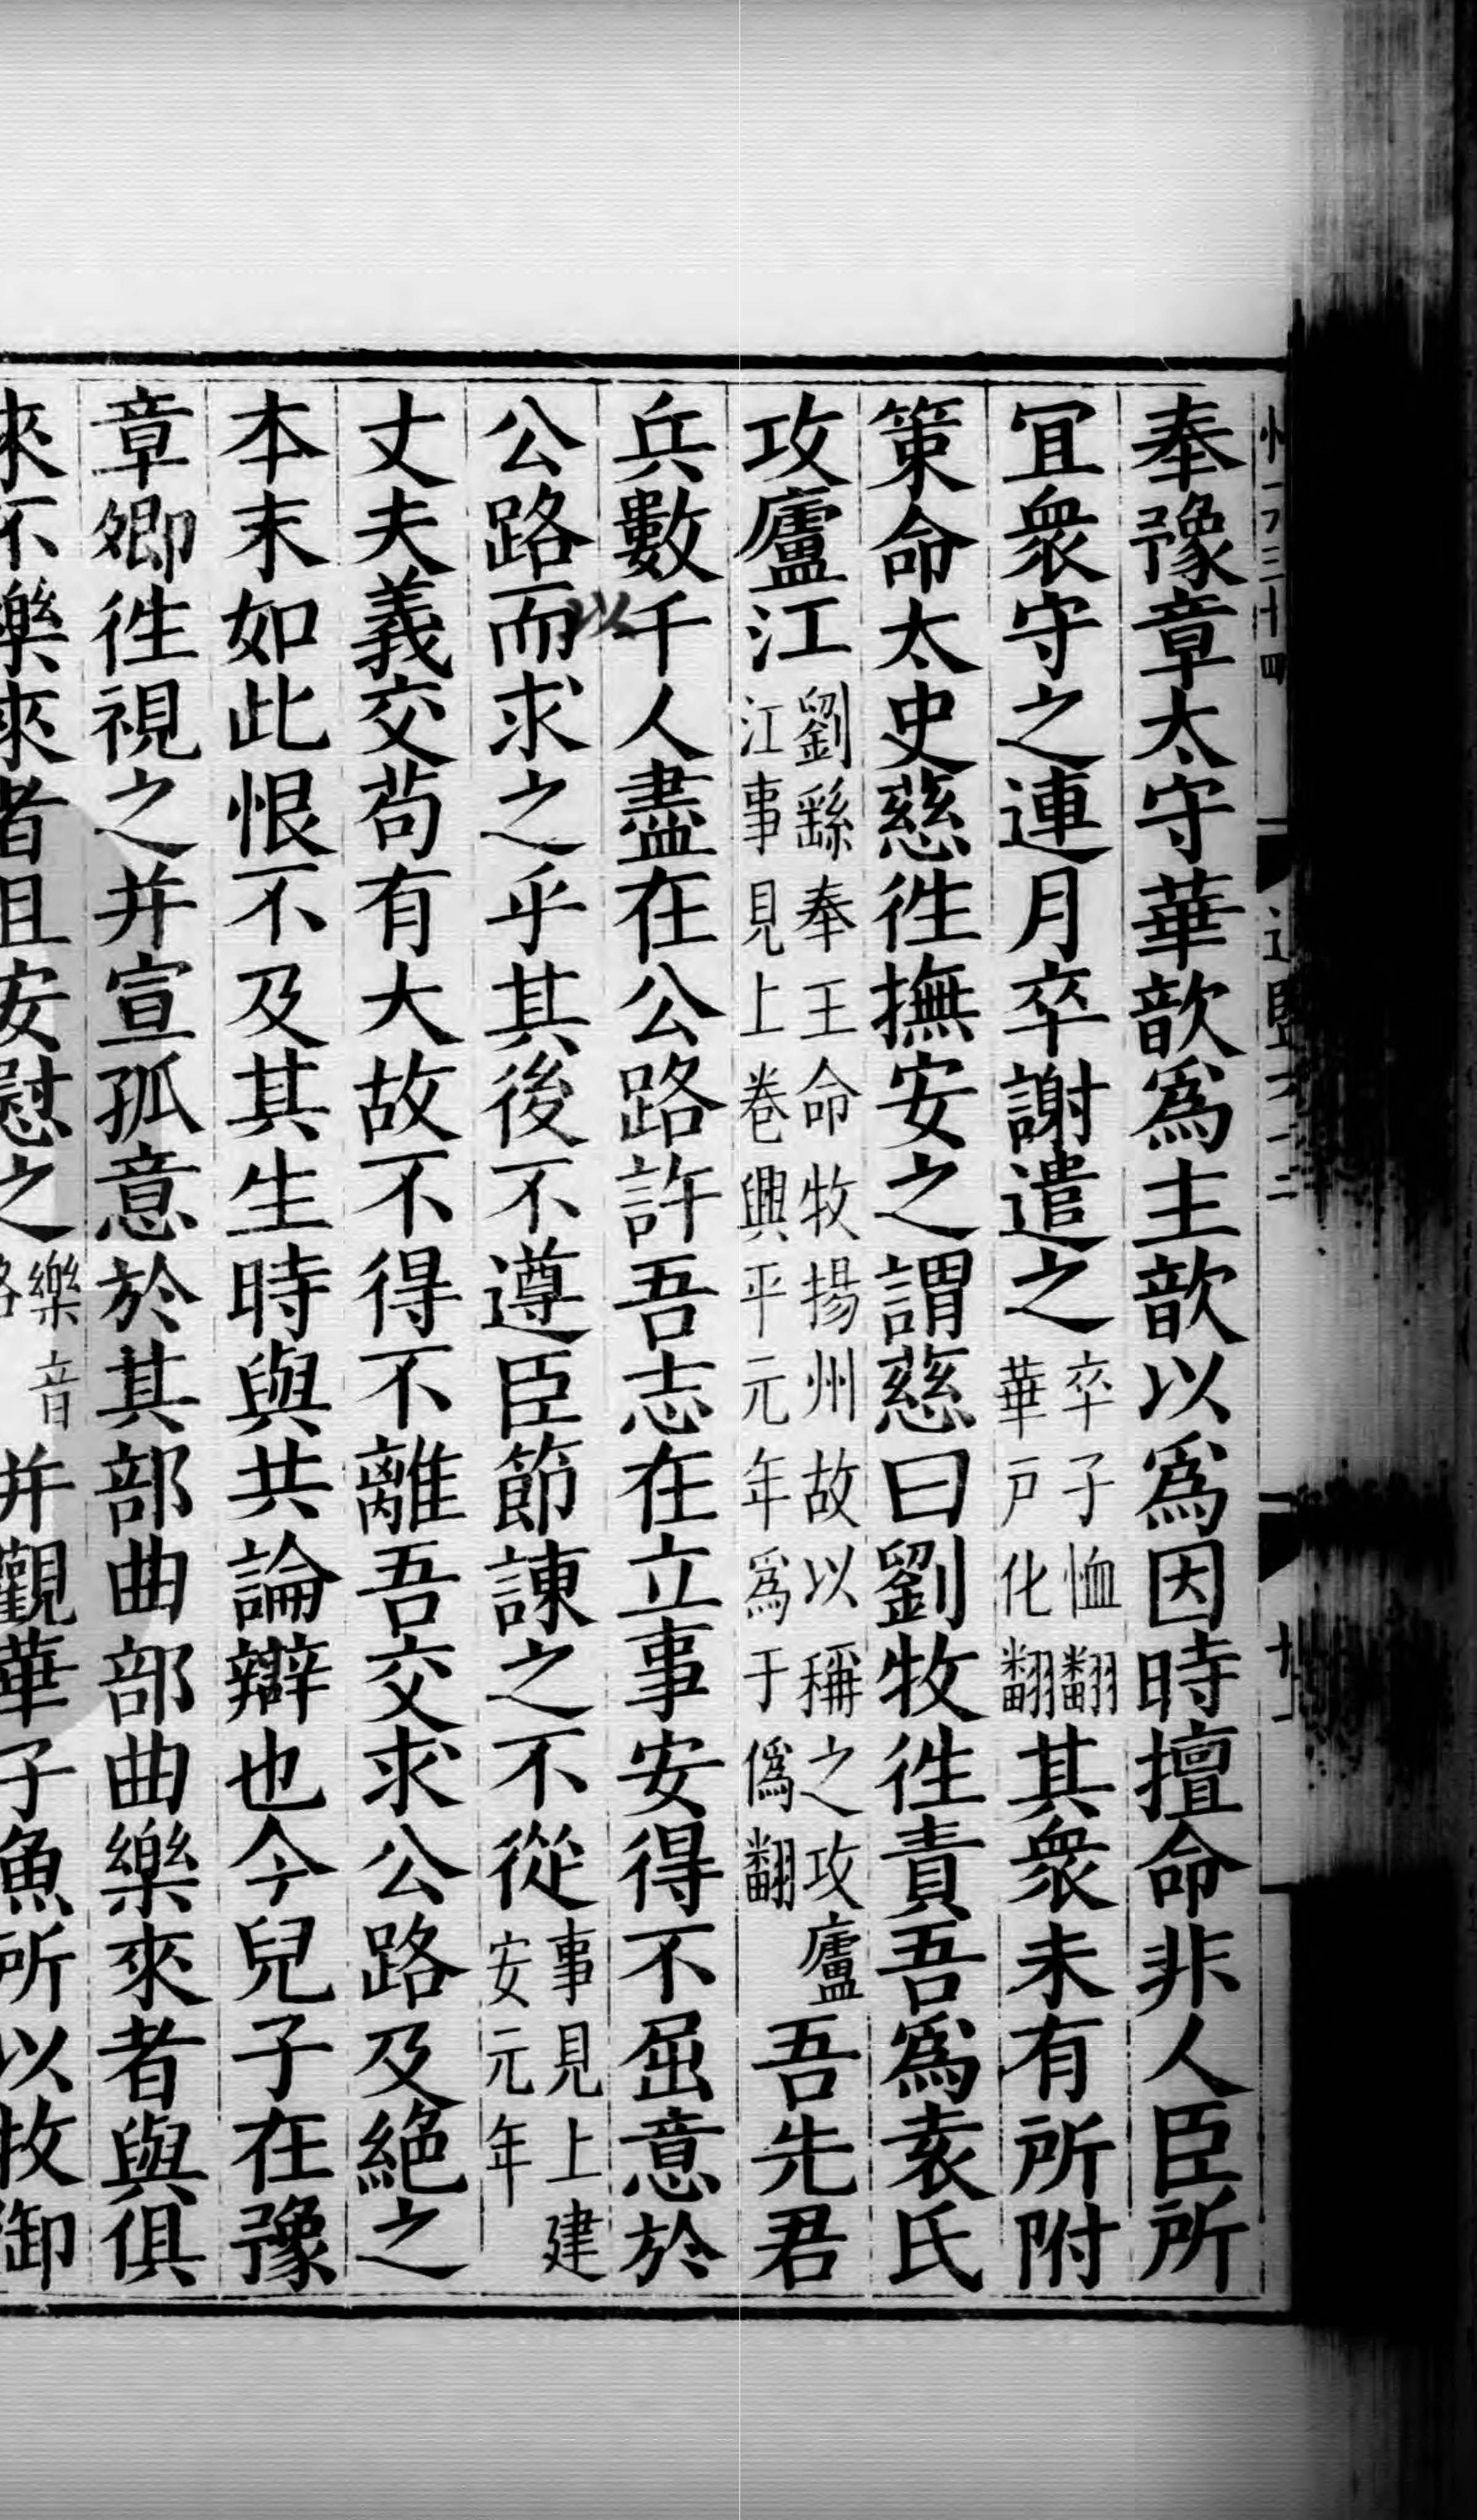 奉豫章太守華歆爲主歆以爲因時擅命非人臣所
冝衆守之連月卒謝遣之卒子恤翻華戸化翻其衆未有所附
策命太史慈徃撫安之謂慈曰劉牧徃責吾爲袁氏
攻廬江劉繇奉王命牧揚州故以稱之攻廬江事見上卷興平元年爲于僞翻吾先君
兵數千人盡在公路許吾志在立事安得不屈意於
公路而以求之乎其後不遵臣節諫之不從事見上建安元年
丈夫義交苟有大故不得不離吾交求公路及絶之
本末如此恨不及其生時與共論辯也今兒子在豫
章卿徃視之并宣孤意於其部曲部曲樂來者與俱
來不樂來者且安慰之樂音并觀華子魚所以牧御